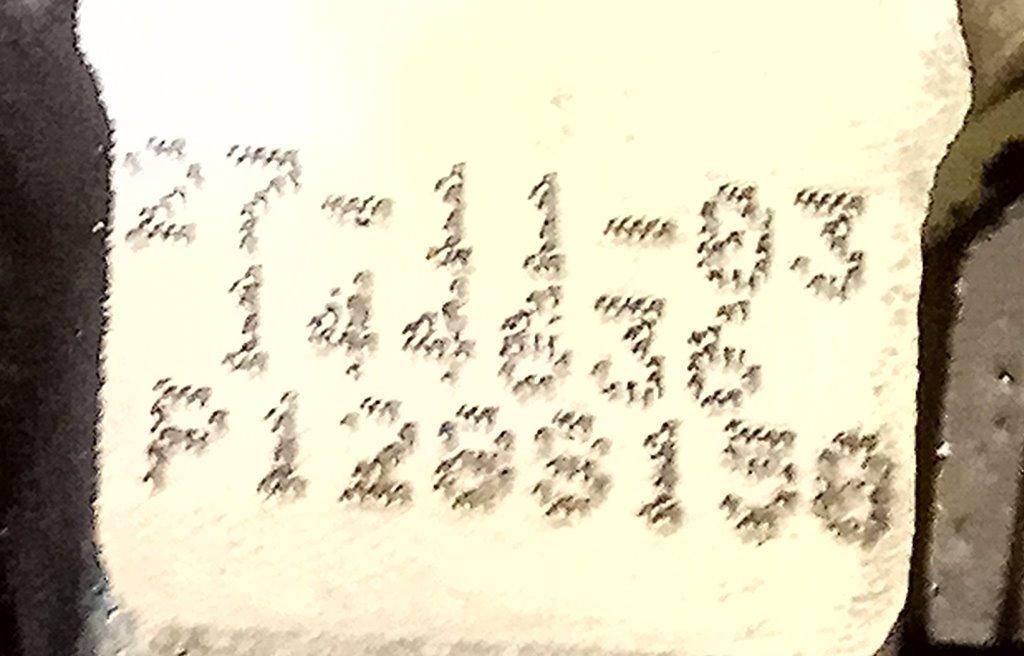 27-11-03
144636
P1288150